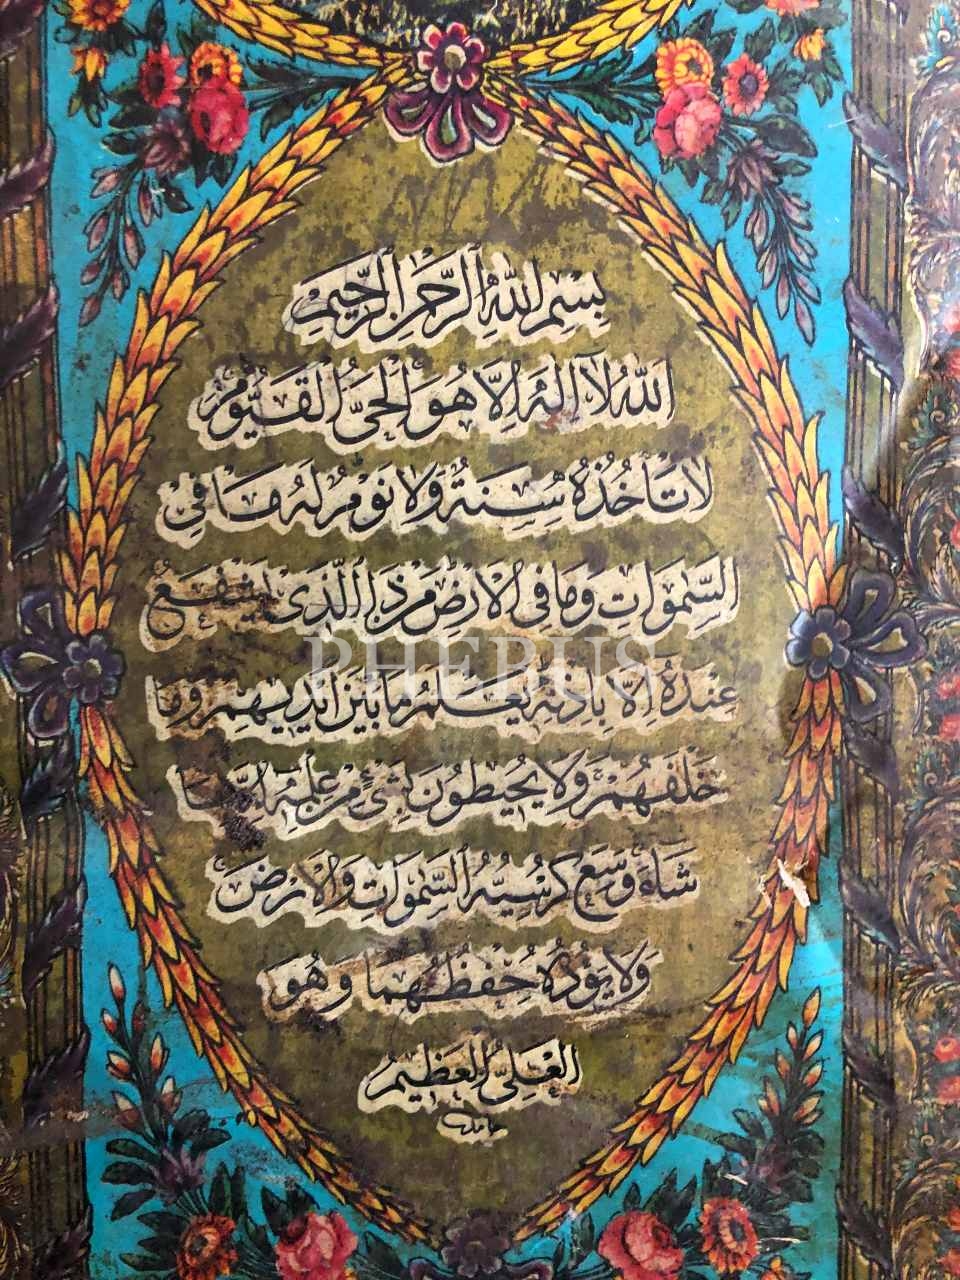 بِسْمِ اللهِ الرَّحْمٰنِ الرَّحِيمِ
اَللهُ لَآ اِلٰهَ اِلَّا هُوَ الْحَيُّ الْقَيُّومُ
لَا تَأْخُذُهُ سِنَةٌ وَلَا نَوْمٌ لَهُ مَا فِي
السَّمٰوَاتِ وَمَا فِي الْاَرْضِ مَنْ ذَا الَّذِي يَشْفَعُ
عِنْدَهُ اِلَّا بِاِذْنِهِ يَعْلَمُ مَا بَيْنَ اَيْدِيهِمْ وَمَا
خَلْفَهُمْ وَلَا يُحِيطُونَ بِشَيْءٍ مِنْ عِلْمِهِ اِلَّا بِمَا
شَاءَ وَسِعَ كُرْسِيُّهُ السَّمٰوَاتِ وَالْاَرْضَ
وَلَا يَؤُدُهُ حِفْظُهُمَا وَهُوَ
الْعَلِيُّ الْعَظِيمُ
حامد
PHEBUS